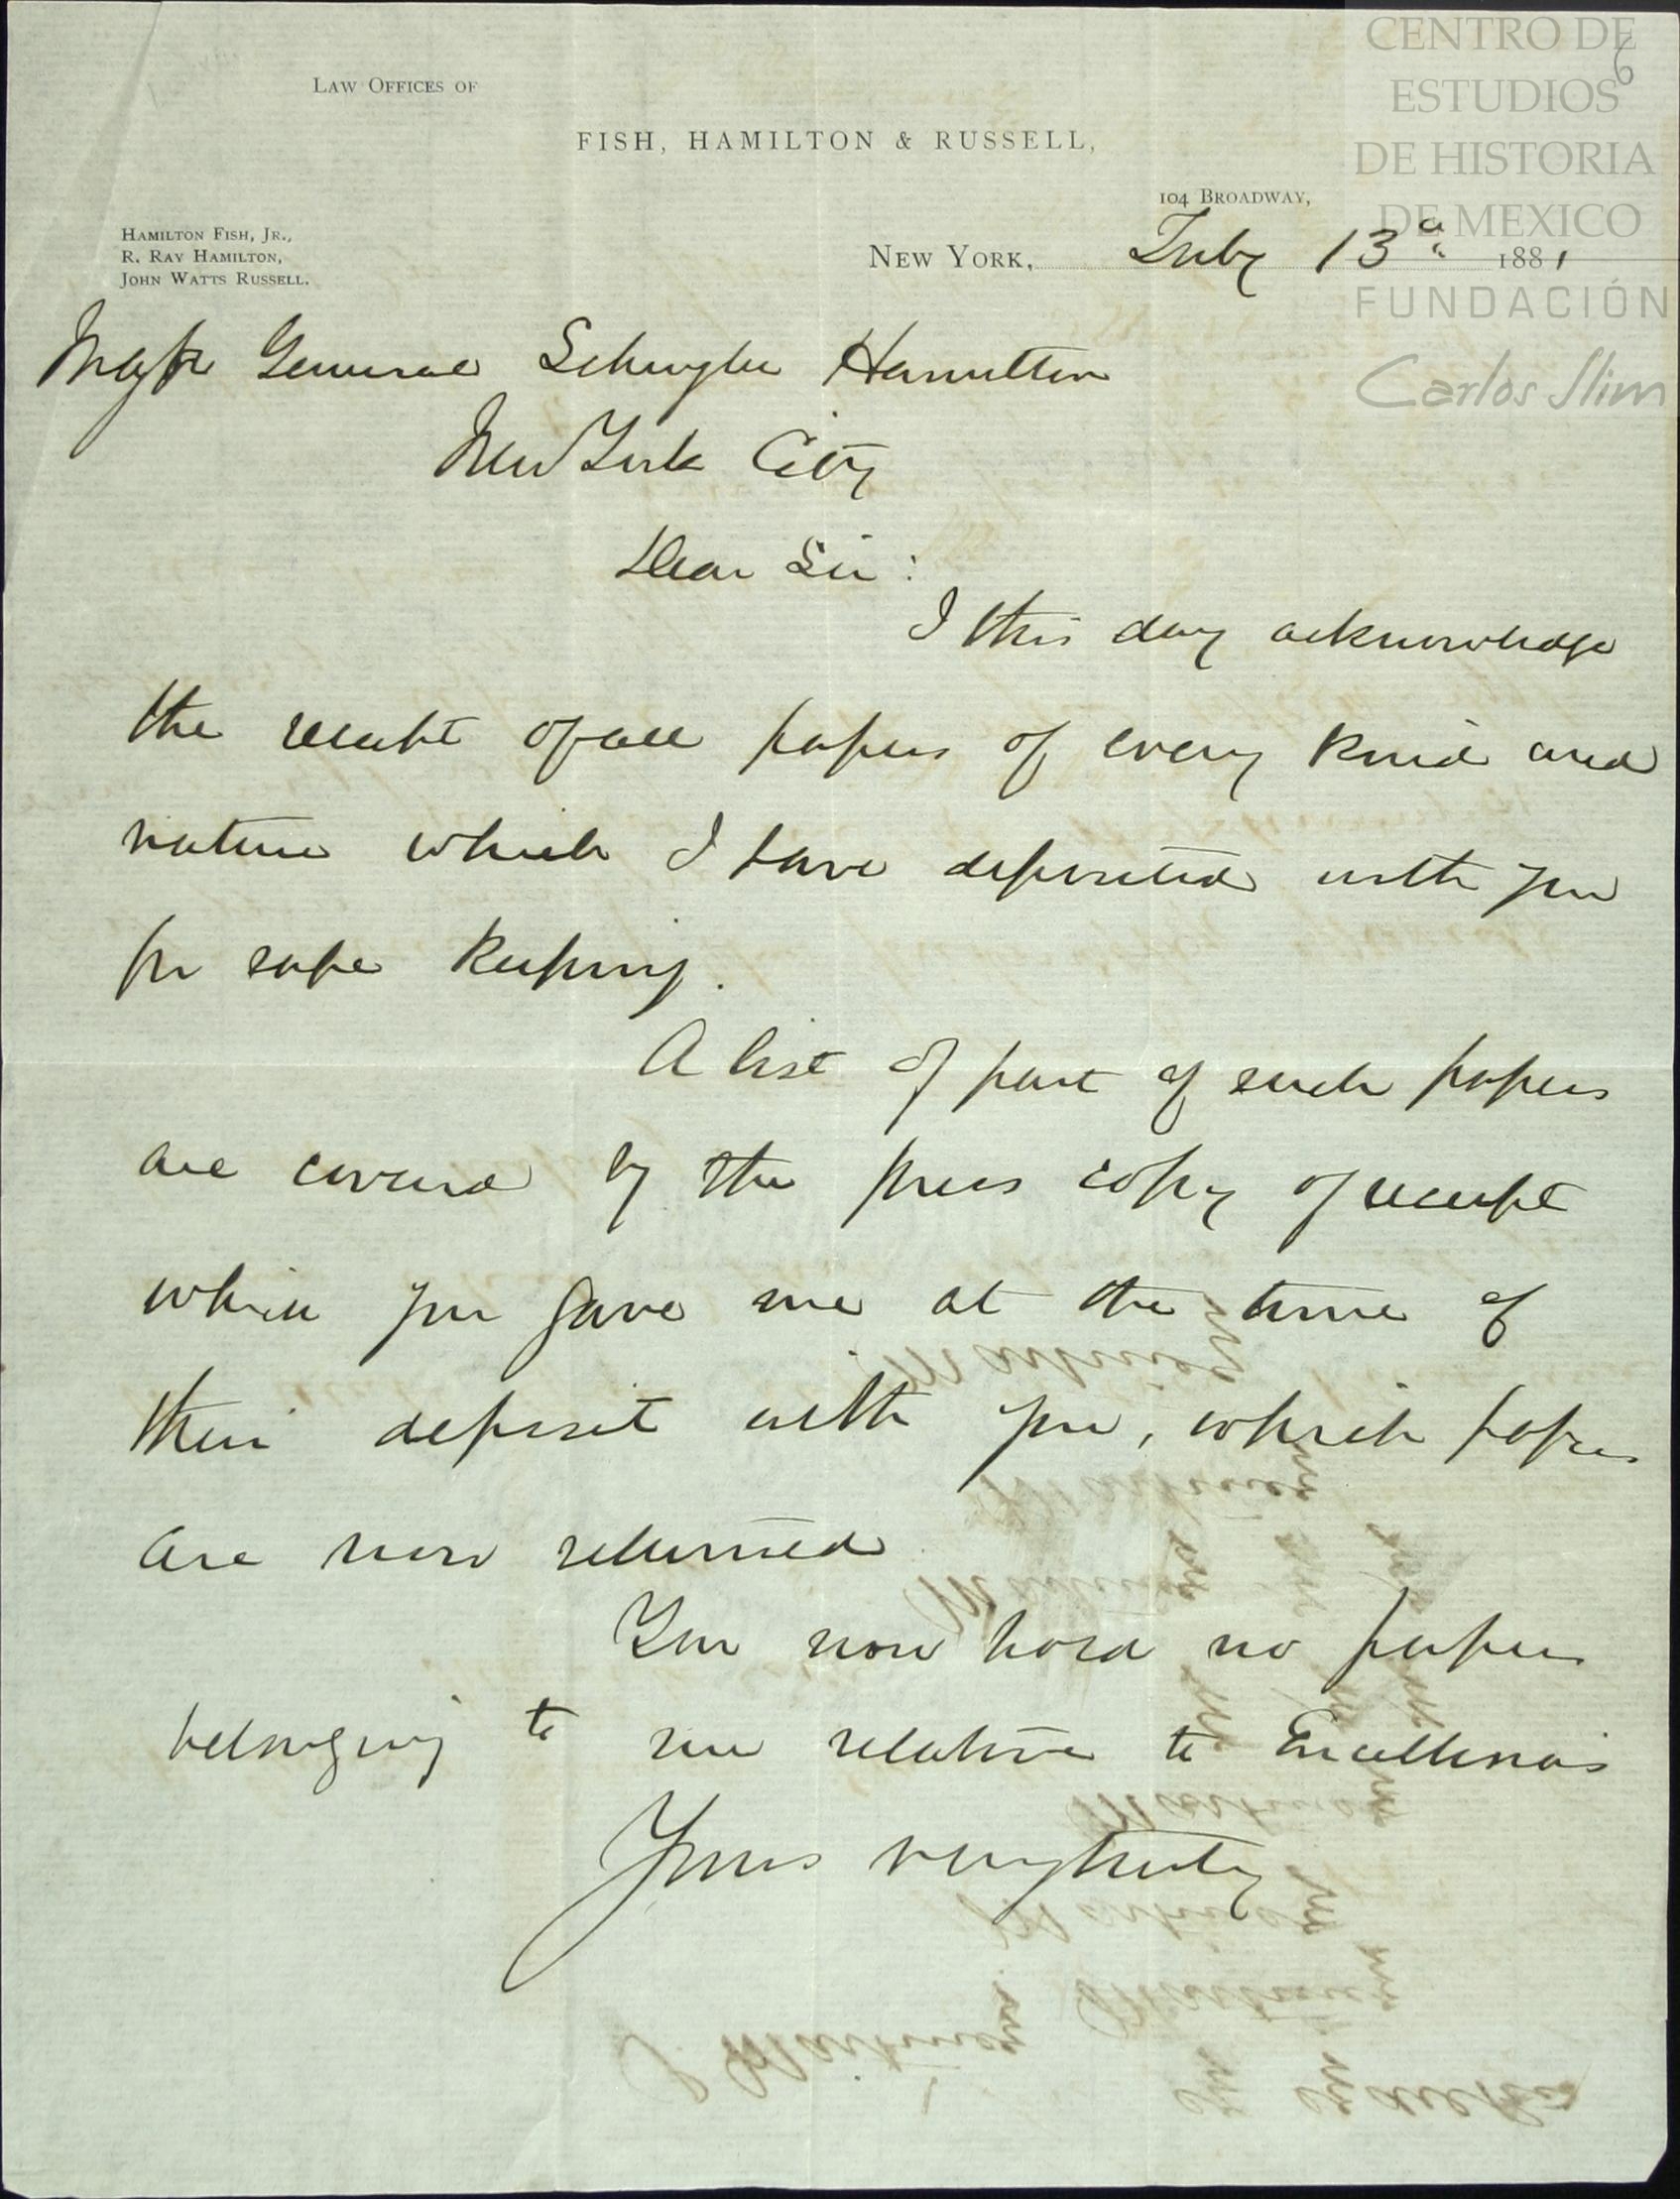 CENTRO DE
ESTUDIOS
DE HISTORIA
DE MEXICO
FUNDACIÓN
Carlos Slim
6
LAW OFFICES OF
FISH, HAMILTON & RUSSELL,
104 BROADWAY,
HAMILTON FISH, JR.,
R. RAY HAMILTON,
JOHN WATTS RUSSELL.
NEW YORK, July 13 1881
Major General Schuyler Hamilton
New York City
Dear Sir:
I this day acknowledge
the receipt of all papers of every kind and
nature which I have deposited with you
for safe keeping.
A list of part of such papers
are covered by the press copy of receipt
which you gave me at the time of
their deposit with you, which papers
are now returned
You now hold no papers
belonging to me relative to
Yours very truly